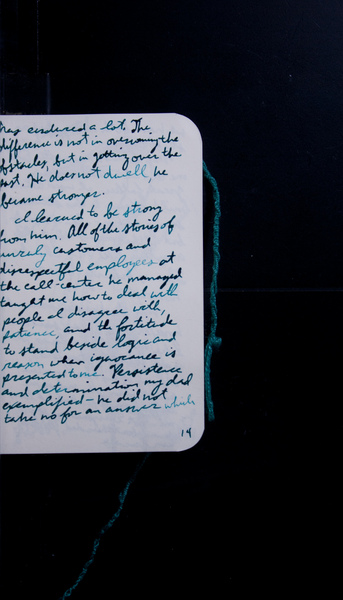 has endured a lot. The
difference is not in overcoming the
obstacles, but in getting over the
past. He does not dwell, he
became stronger.
I learned to be strong
from him. All of the stories of
unruly customers and
disrespectful employees at
the call-center he managed
taught me how to deal with
people I disagree with,
patience and the fortitude
to stand beside logic and
reason when ignorance is
presented to me. Persistence
and determination my dad
exemplified - he did not
take no for an answer which
14